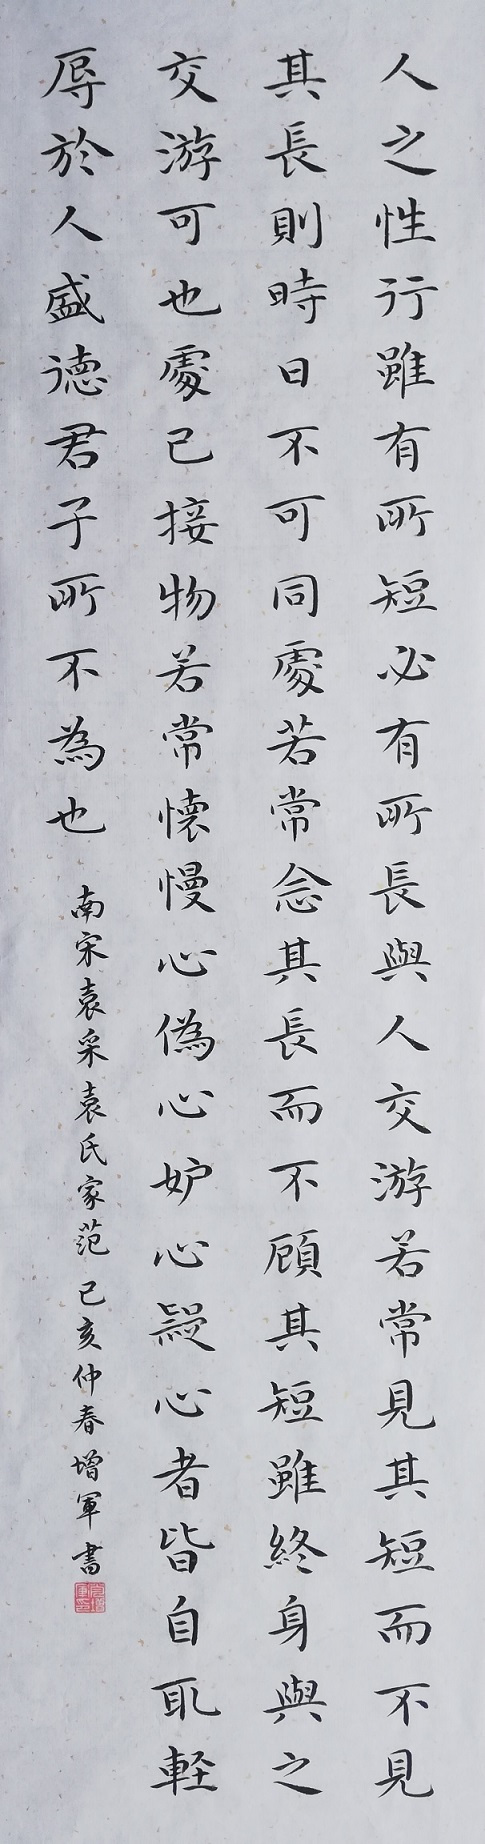 人之性行雖有所短必有所長與人交游若常見其短而不見
其長則時日不可同處若常念其長而不顧其短雖終身與之
交游可也處己接物若常懷慢心偽心妒心疑心者皆自取輕
辱於人盛德君子所不為也
南宋袁采袁氏家范 己亥仲春增軍書